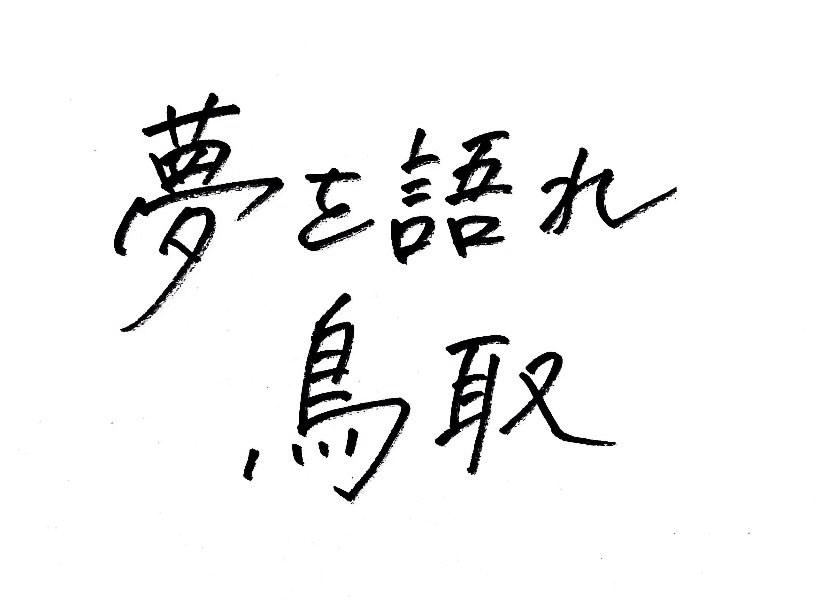 夢を語れ
鳥取